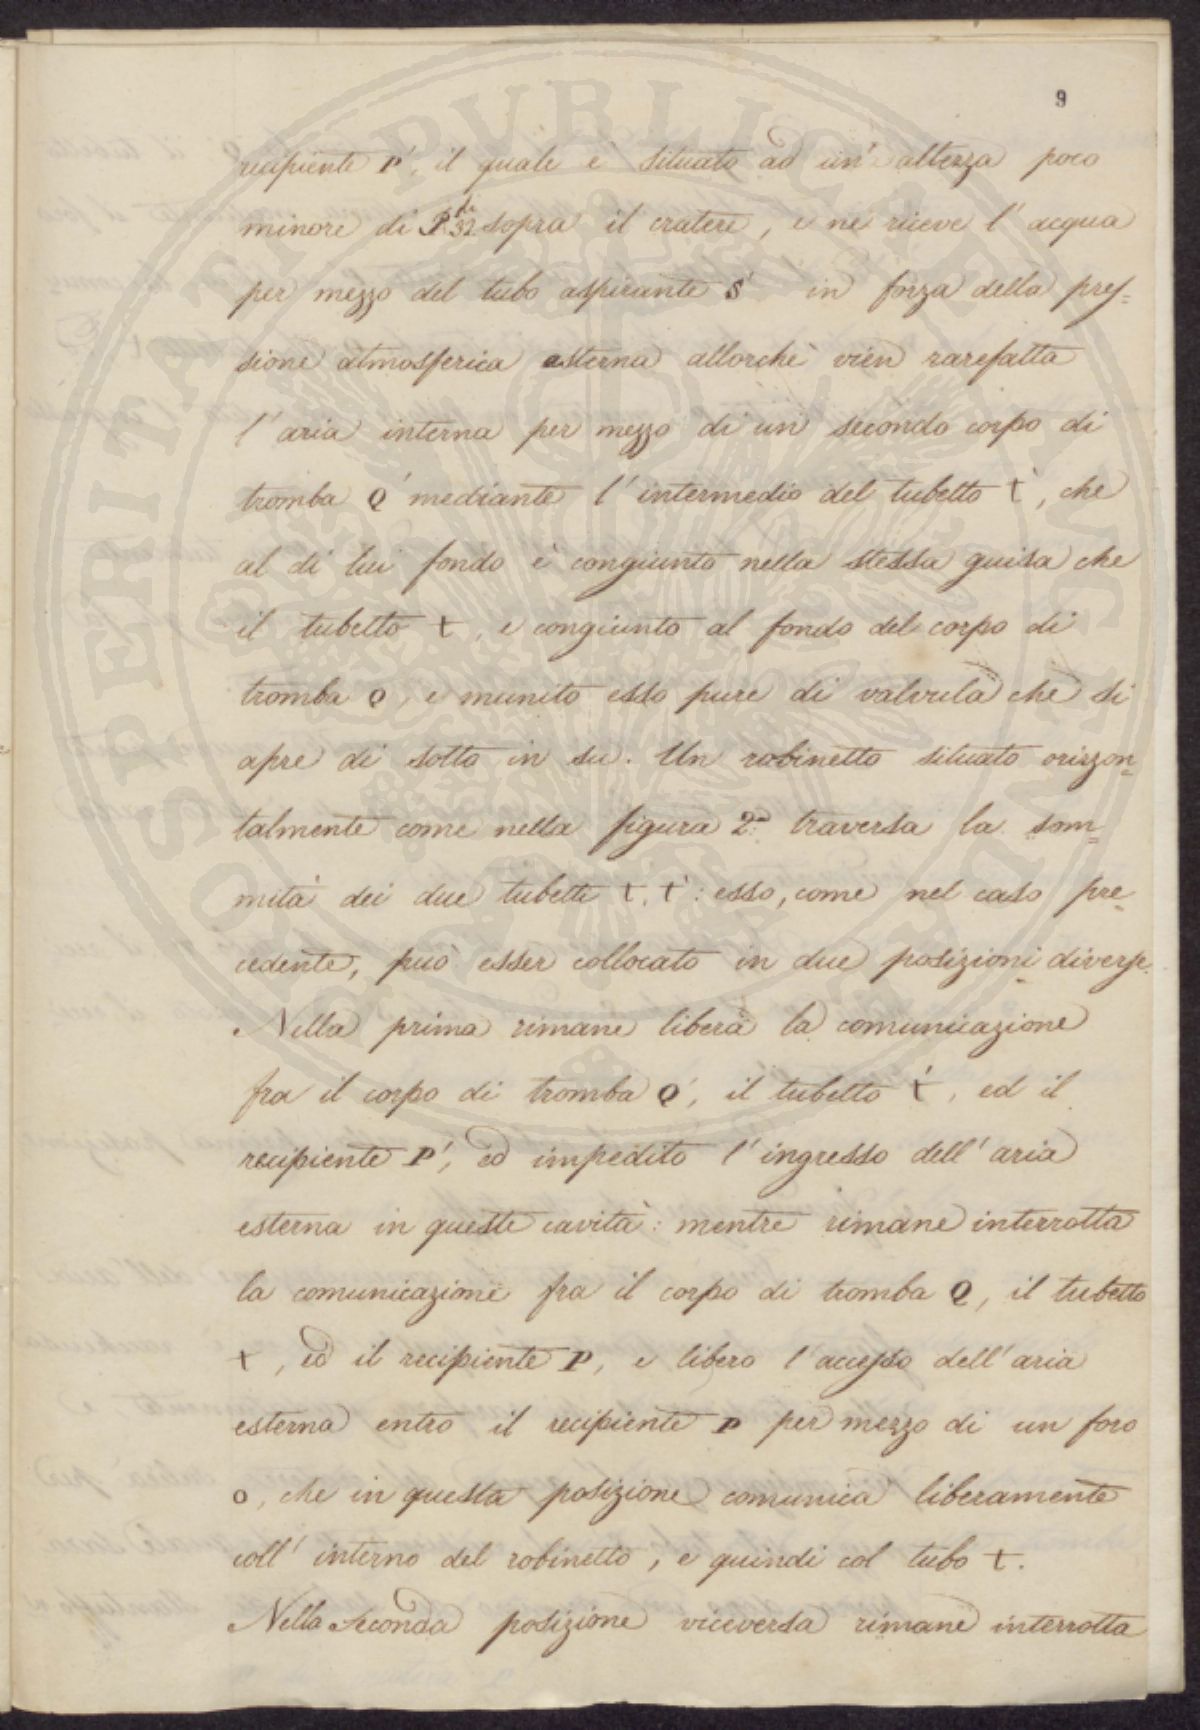 9
recipiente P', il quale è situato ad un' altezza poco
minore di P.di 32 sopra il cratere, e ne riceve l' acqua
per mezzo del tubo aspirante S' in forza della pres=
sione atmosferica esterna allorchè vien rarefatta
l' aria interna per mezzo di un secondo corpo di
tromba Q' mediante l' intermedio del tubetto t', che
al di lui fondo è congiunto nella stessa guisa che
il tubetto t, è congiunto al fondo del corpo di
tromba Q, e munito esso pure di valvula che si
apre di sotto in su. Un robinetto situato orizzon=
talmente come nella figura 2.a traversa la som=
mità dei due tubetti t, t': esso, come nel caso pre=
cedente, può esser collocato in due posizioni diverse.
Nella prima rimane libera la comunicazione
fra il corpo di tromba Q', il tubetto t', ed il
recipiente P', ed impedito l' ingresso dell' aria
esterna in queste cavità: mentre rimane interrotta
la comunicazione fra il corpo di tromba Q, il tubetto
t, ed il recipiente P, e libero l' accesso dell' aria
esterna entro il recipiente P per mezzo di un foro
o, che in questa posizione comunica liberamente
coll' interno del robinetto, e quindi col tubo t.
Nella seconda posizione viceversa rimane interrotta